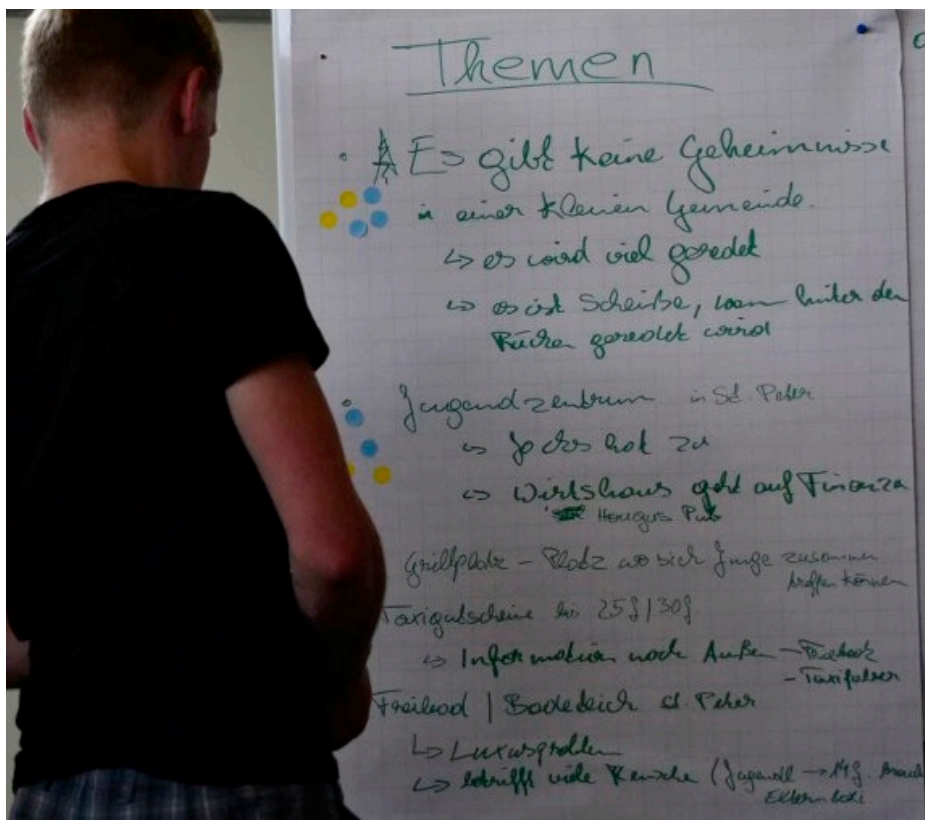 Themen
Es gibt keine Geheimnisse
in einer kleinen Gemeinde.
↳ es wird viel geredet
↳ es ist Scheiße, wenn hinter den
Rücken geredet wird
Jugendzentrum in St. Peter
↳ hat zu
↳ Wirtshaus geht auf Finanzen
Pub
Grillplatz – Platz wo sich Junge zusammen
treffen können
Taxigutscheine bis 25J/30J.
↳ Information nach Außen – Facebook
– Taxifahrer
Freibad | Badeteich St. Peter
↳ Luxusproblem
↳ betrifft viele Menschen (Jugendl → 14J.
Elterntaxi